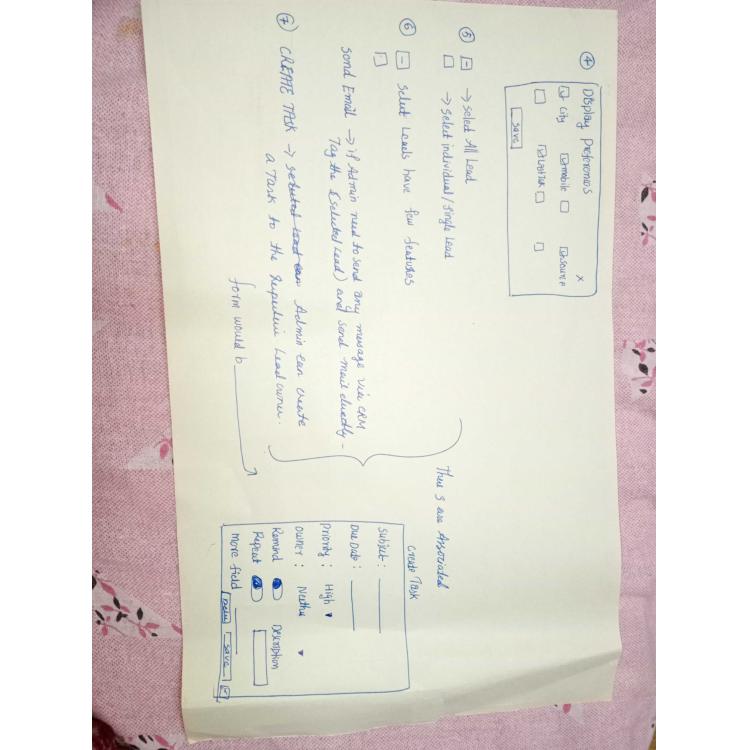 ④
Display Preferences X
City mobile Source
save
⑤ → Select All Lead
→ Select individual/single Lead
⑥ Select Leads have few features
Send Email → if Admin need to send any message via CRM
Tag the (selected Lead) and send mail directly -
⑦ CREATE TASK → selected Lead can Admin can create
a Task to the Lead owner.
form would b
These 3 are Associated
Create Task
Subject :
Due Date :
Priority : High ▼
Owner : ▼
Remind Description
Repeat
more field
save